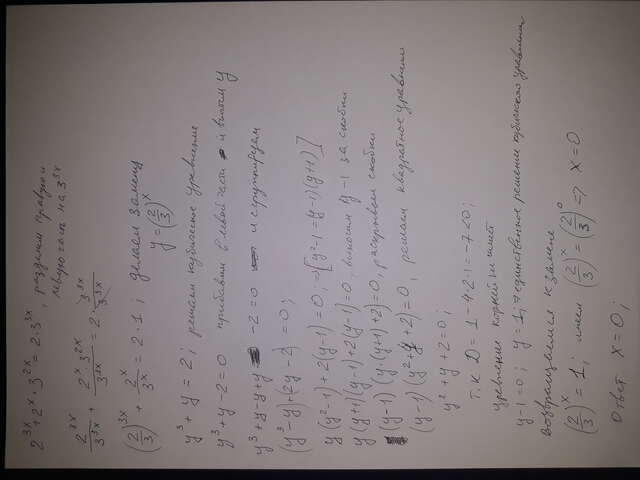 2^{3x} + 2^x · 3^{2x} = 2 · 3^{3x}, разделим правую и
левую часть на 3^{3x}
2^{3x}/3^{3x} + 2^x 3^{2x}/3^{3x} = 2 · 3^{3x}/3^{3x}
(2/3)^{3x} + 2^x/3^x = 2 · 1; делаем замену
y = (2/3)^x
y³ + y = 2; решаем кубическое уравнение
y³ + y - 2 = 0 прибавим в левой части и вычтем y
y³ + y - y + y - 2 = 0 и сгруппируем
(y³ - y) + (2y - 2) = 0;
y (y² - 1) + 2(y - 1) = 0; → [y² - 1 = (y - 1)(y + 1)]
y (y + 1)(y - 1) + 2(y - 1) = 0, выносим y - 1 за скобки
(y - 1) (y (y + 1) + 2) = 0, раскрываем скобки
(y - 1) (y² + y + 2) = 0; решаем квадратное уравнение
y² + y + 2 = 0;
т.к D = 1 - 4·2·1 = -7 < 0;
уравнение корней не имеет
y - 1 = 0; y = 1; → единственное решение кубического уравнения
возвращаемся к замене
(2/3)^x = 1; имеем (2/3)^x = (2/3)^0 => x = 0
Ответ x = 0;